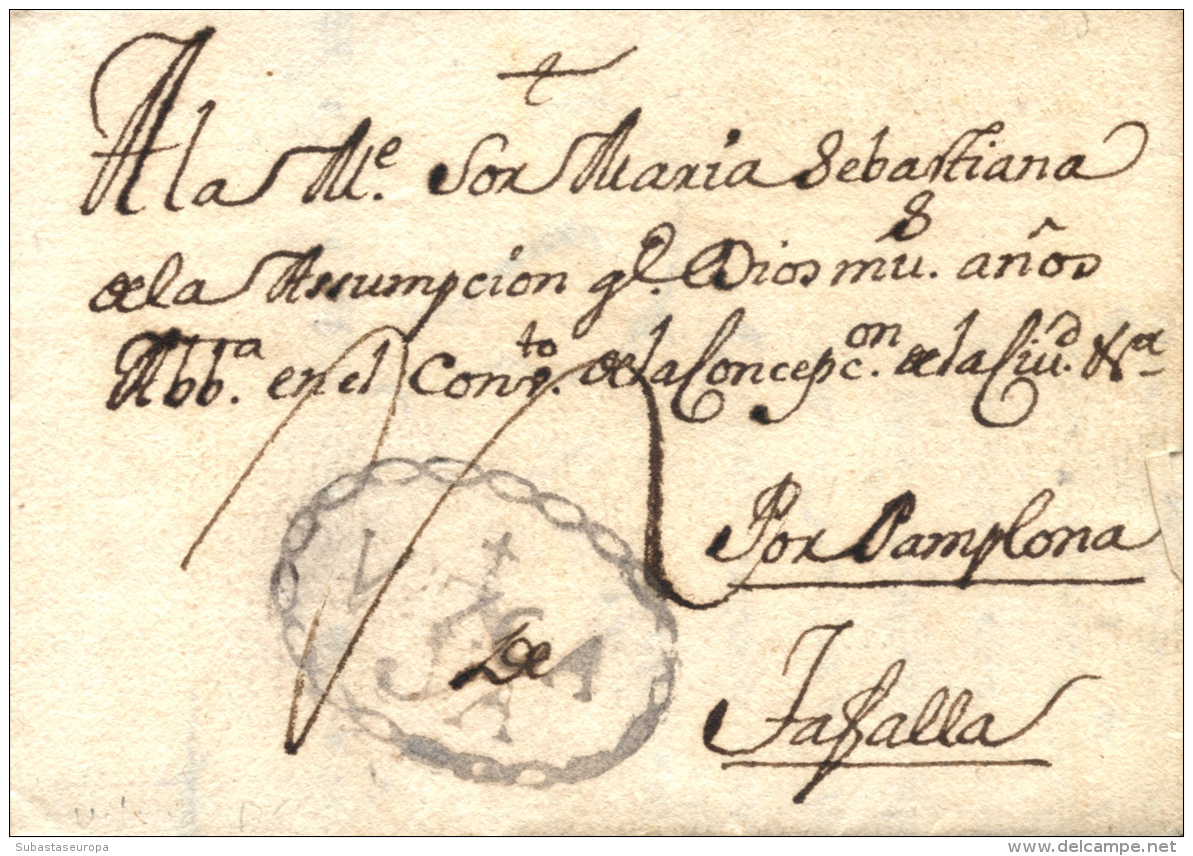 A la M.e Sor Maria Sebastiana
de la Assumpcion g.e Dios m.s a.s años
Abb.a en el Conv.to de la Concepc.on de la Ciu.d &a
Por Pamplona
De
Tafalla
Subastaseuropa
www.delcampe.net